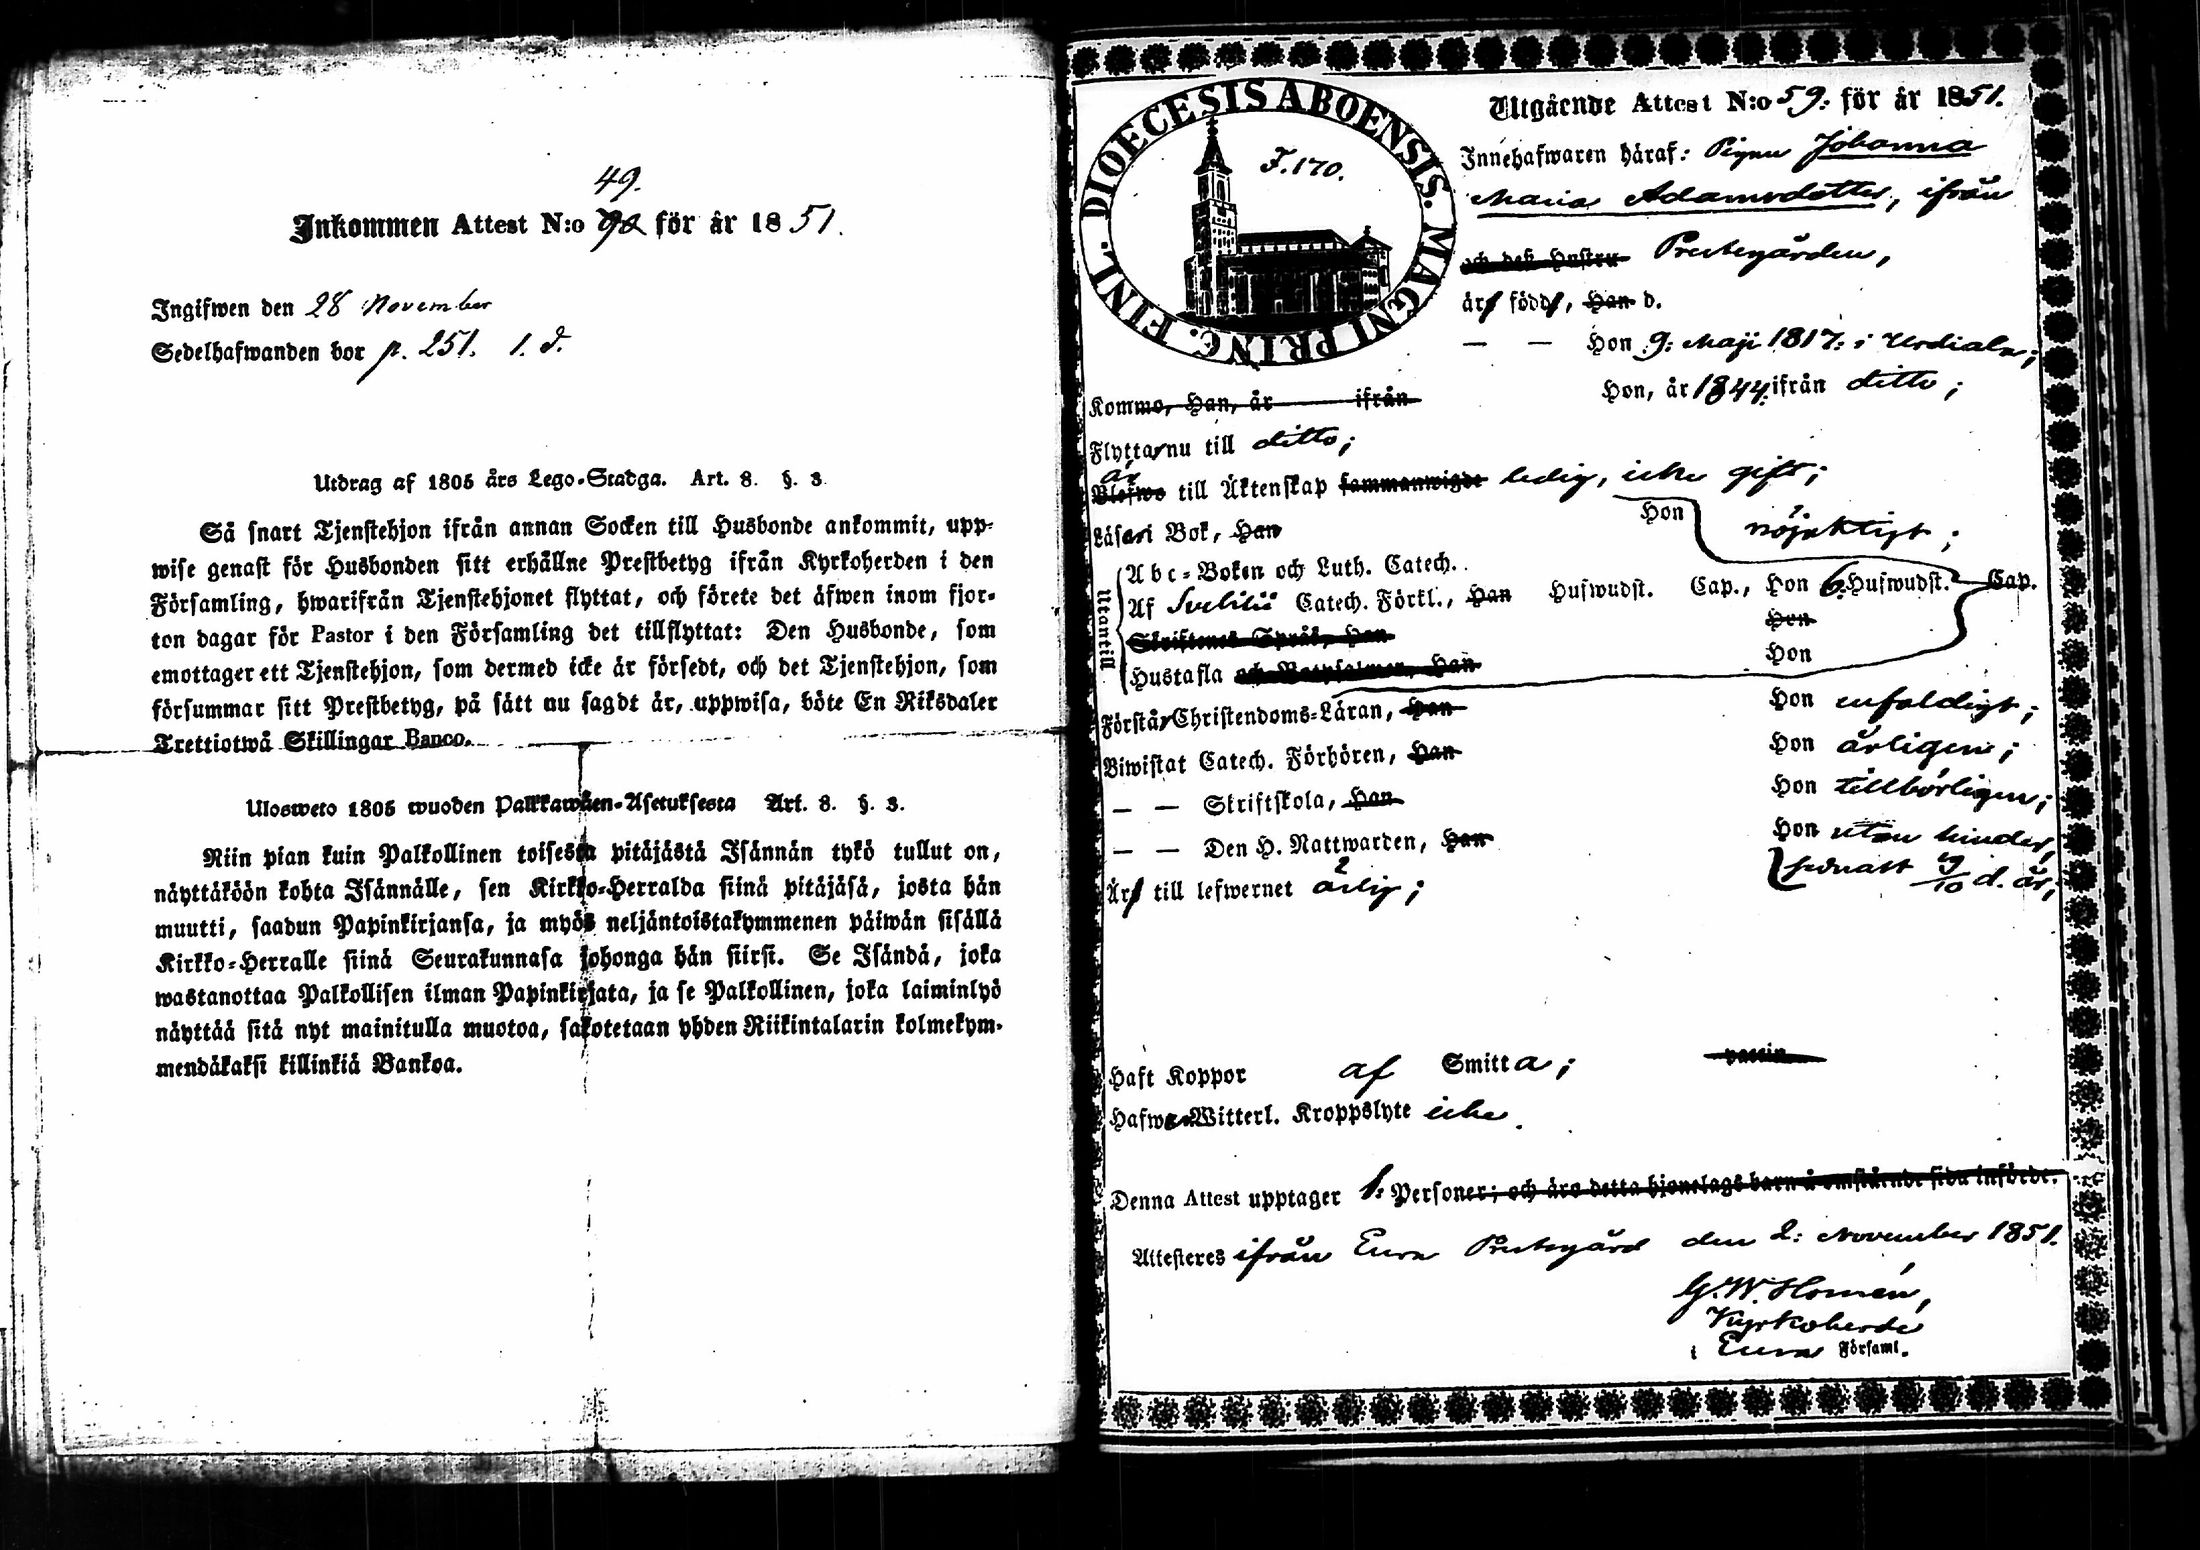 49.
Inkommen Attest N:o 90 för år 1851.
Ingifwen den 28 November
Sedelhafwanden bor p. 251. 1. d.
Utdrag af 1805 års Lego-Stadga. Art. 8. §. 3.
Så snart Tjenstehjon ifrån annan Socken till Husbonde ankommit, upp-
wise genast för Husbonden sitt erhållne Prestbetyg ifrån Kyrkoherden i den
Församling, hwarifrån Tjenstehjonet flyttat, och förete det äfwen inom fjor-
ton dagar för Pastor i den Församling det tillflyttat: Den Husbonde, som
emottager ett Tjenstehjon, som dermed icke är försedt, och det Tjenstehjon, som
försummar sitt Prestbetyg, på sätt nu sagdt är, uppwisa, böte En Riksdaler
Trettiotwå Skillingar Banco.
Ulosweto 1805 wuoden Palkkawäen-Asetuksesta Art. 8. §. 3.
Niin pian kuin Palkollinen toisesta pitäjästä Isännän tykö tullut on,
näyttäköön kohta Isännälle, sen Kirkko-Herralda siinä pitäjäsä, josta hän
muutti, saadun Papinkirjansa, ja myös neljäntoistakymmenen päiwän sisällä
Kirkko-Herralle siinä Seurakunnasa johonga hän siirsi. Se Isändä, joka
wastanottaa Palkollisen ilman Papinkirjata, ja se Palkollinen, joka laiminlyö
näyttää sitä nyt mainitulla muotoa, sakotetaan yhden Riikintalarin kolmekym-
mendäkaksi killinkiä Bankoa.
DIOECESIS ABOENSIS. MAGNI PRINC. FINL.
F. 170.
Utgående Attest N:o 59: för år 1851.
Innehafwaren häraf: Pigan Johanna
Maria Adamsdotter, ifrån
och deß Hustru Prestegården,
är född, Han d.
— — Hon 9: Maji 1817: i Urdiala;
Kommo, Han, år ifrån Hon, år 1844 ifrån ditto;
Flytta nu till ditto;
är
Blefwo till Äktenskap sammanwigde ledig, icke gift;
Läsa i Bok, Han Hon nöjaktigt;
Utantill
Abc-Boken och Luth. Catech.
Af Svebilii Catech. Förkl., Han Hufwudst. Cap., Hon 6 Hufwudst. Cap.
Skriftenes Språk, Han Hon
Hustafla och Botpsalmer, Han Hon
Förstår Christendoms-Läran, Han Hon enfaldigt;
Biwistat Catech. Förhören, Han Hon årligen;
— — Skriftskola, Han Hon tillbörligen;
— — Den H. Nattwarden, Han Hon utan hinder,
senast 19/10 d. år;
Är till lefwernet ärlig;
Haft Koppor af Smitta;
Hafwa Witterl. Kroppslyte icke.
Denna Attest upptager 1: Personer; och äro detta hjonelags barn å omstående sida införde.
Attesteres ifrån Eura Prestegård den 2: November 1851.
G. W. Homén,
Kyrkoherde
i Eura Församl.